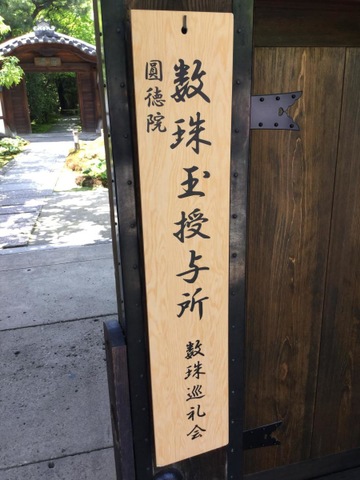 圓徳院
数珠玉授与所
数珠巡礼会